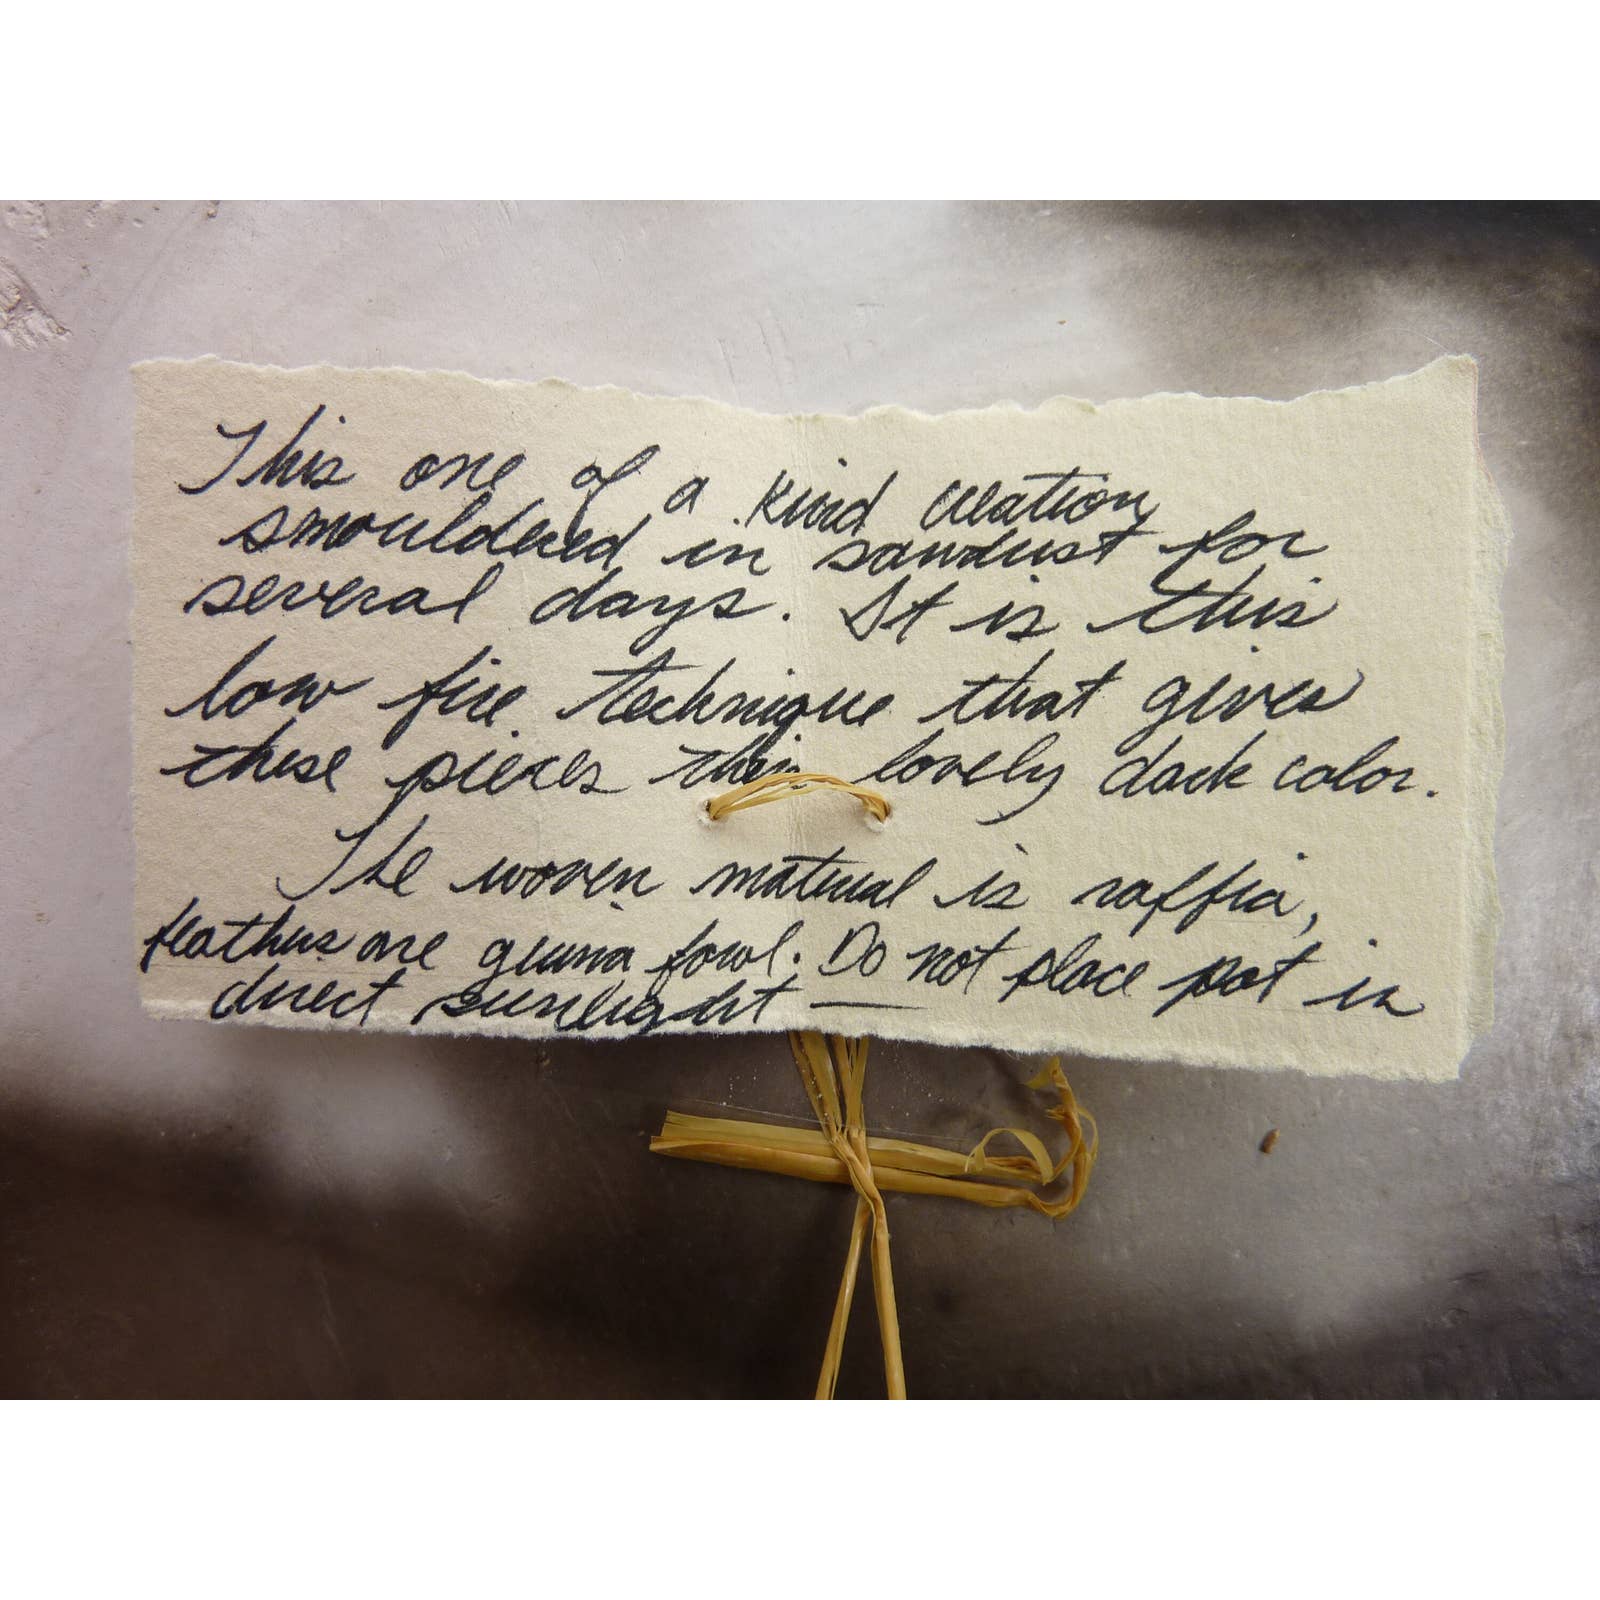 This one of a kind creation
smouldered in sawdust for
several days. It is this
low fire technique that gives
these pieces their lovely dark color.
The woven material is raffia,
feathers are guinea fowl. Do not place pot in
direct sunlight —